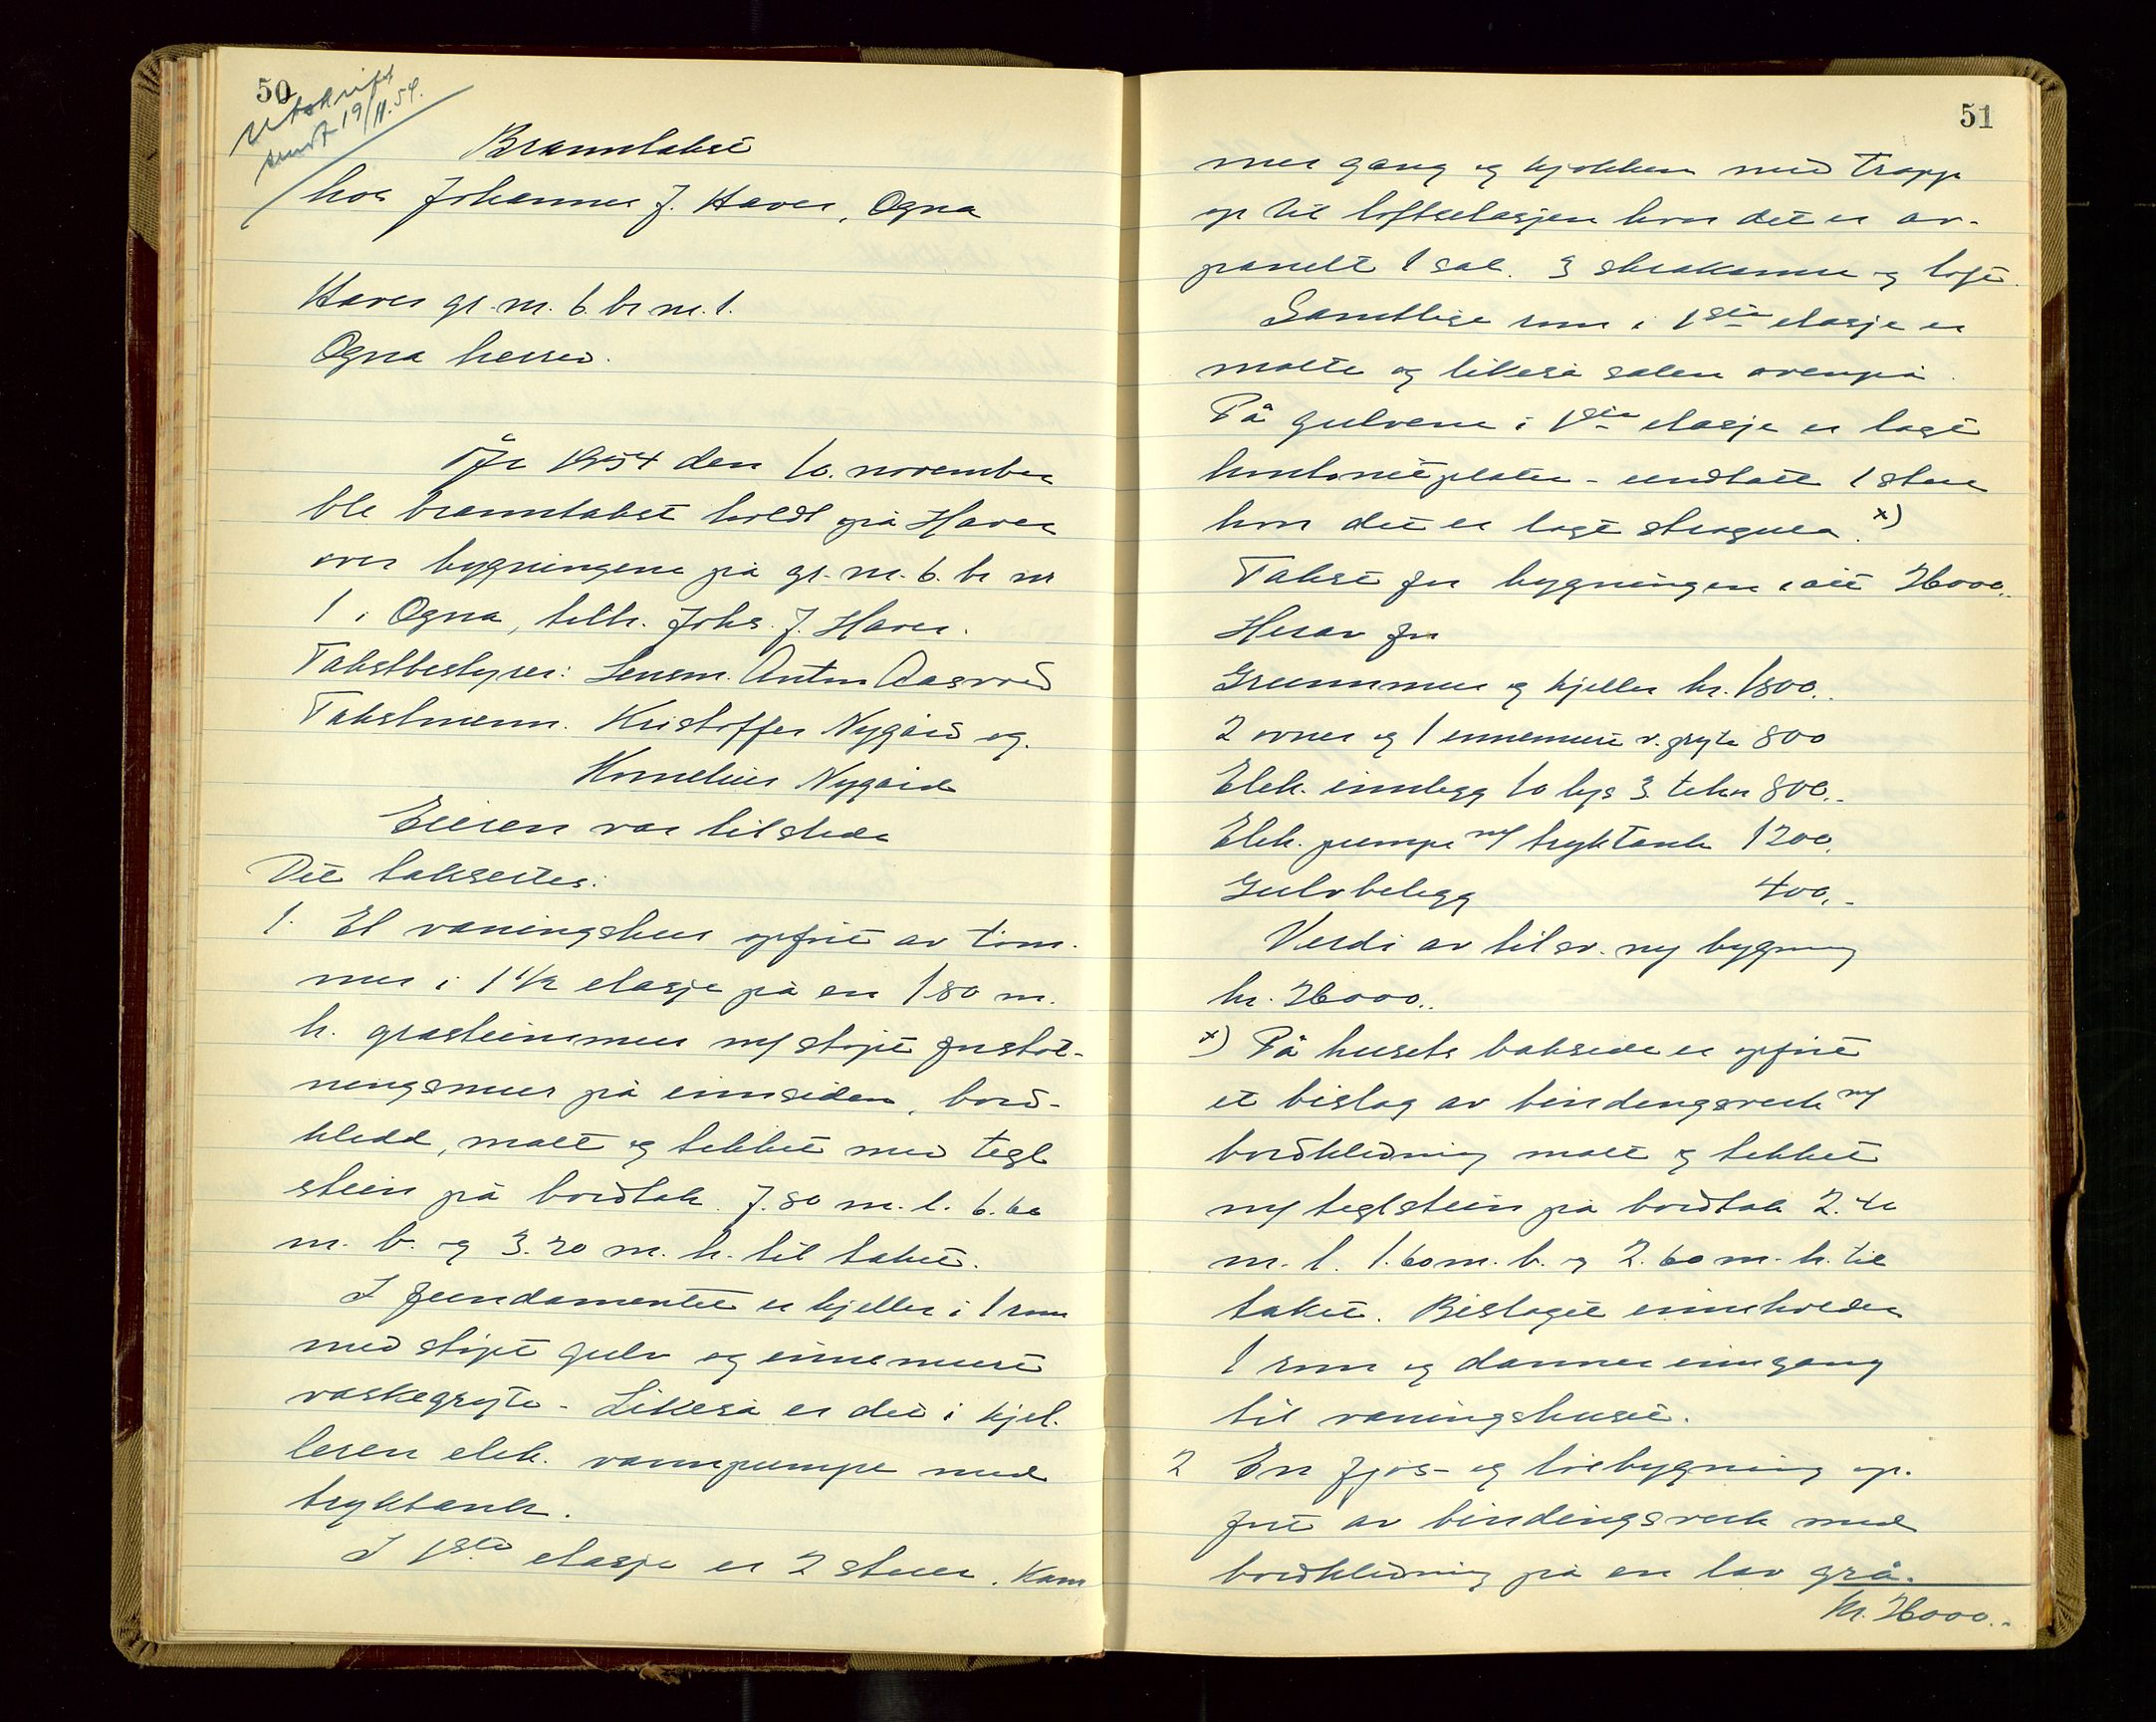 50
Utskrift
sendt 19/11.54.
Branntakst
hos Johannes J. Haver, Ogna
Haver gr. nr. 6. br nr. 1.
Ogna herred.
År 1954 den 10. november
ble branntakst holdt på Haver
over bygningene på gr. nr. 6. br nr
1 i Ogna, tilh. Johs. J. Haver.
Takstbestyrer: Lensm. Anton Aasved
Takstmenn. Kristoffer Nygård og.
Kornelius Nygård
Eieren var tilstede
Det taksertes:
1. Et våningshus opført av tøm-
mer i 1 1/2 etasje på en 1.80 m.
h. gråsteinsmur m/ støpt forstøt-
ningsmur på innsiden, bord-
kledd, malt og tekket med tegl
stein på bordtak. 7.80 m. l. 6.60
m. b. og 3.20 m. h. til taket.
I fundamentet er kjeller i 1 rom
med støpt gulv og innemuret
vaskegryte. Likeså er det i kjel-
leren elek. vannpumpe med
tryktank.
I 1ste etasje er 2 stuer. Kam
51
mer gang og kjøkken med trapp
op til loftsetasjen hvor det er av-
panelt 1 sal. 3 skråkammer og loft.
Samtlige rom i 1ste etasje er
malte og likeså salen ovenpå.
På gulvene i 1ste etasje er lagt
huntonitplater - undtatt 1 stue
hvor det er lagt stragula. x)
Takst for bygningen i alt 26000.
Herav for
Grunnmur og kjeller kr. 1800.-
2 ovner og 1 innemuret v. gryte 800
Elek. innlegg 10 lys 3 tekn 800.-
Elek. pumpe m/ tryktank 1200.
Gulvbelegg 400.-
Verdi av tilsv. ny bygning
kr. 26000.-
x) På husets bakside er opført
et bislag av bindingsverk m/
bordkledning malt og tekket
m/ teglstein på bordtak 2.40
m. l. 1.60 m. b. og 2.60 m. h. til
taket. Bislaget inneholder
1 rom og danner inngang
til våningshuset.
2 En fjøs- og løebygning op-
ført av bindingsverk med
bordkledning på en lav grå-
kr. 26000.-